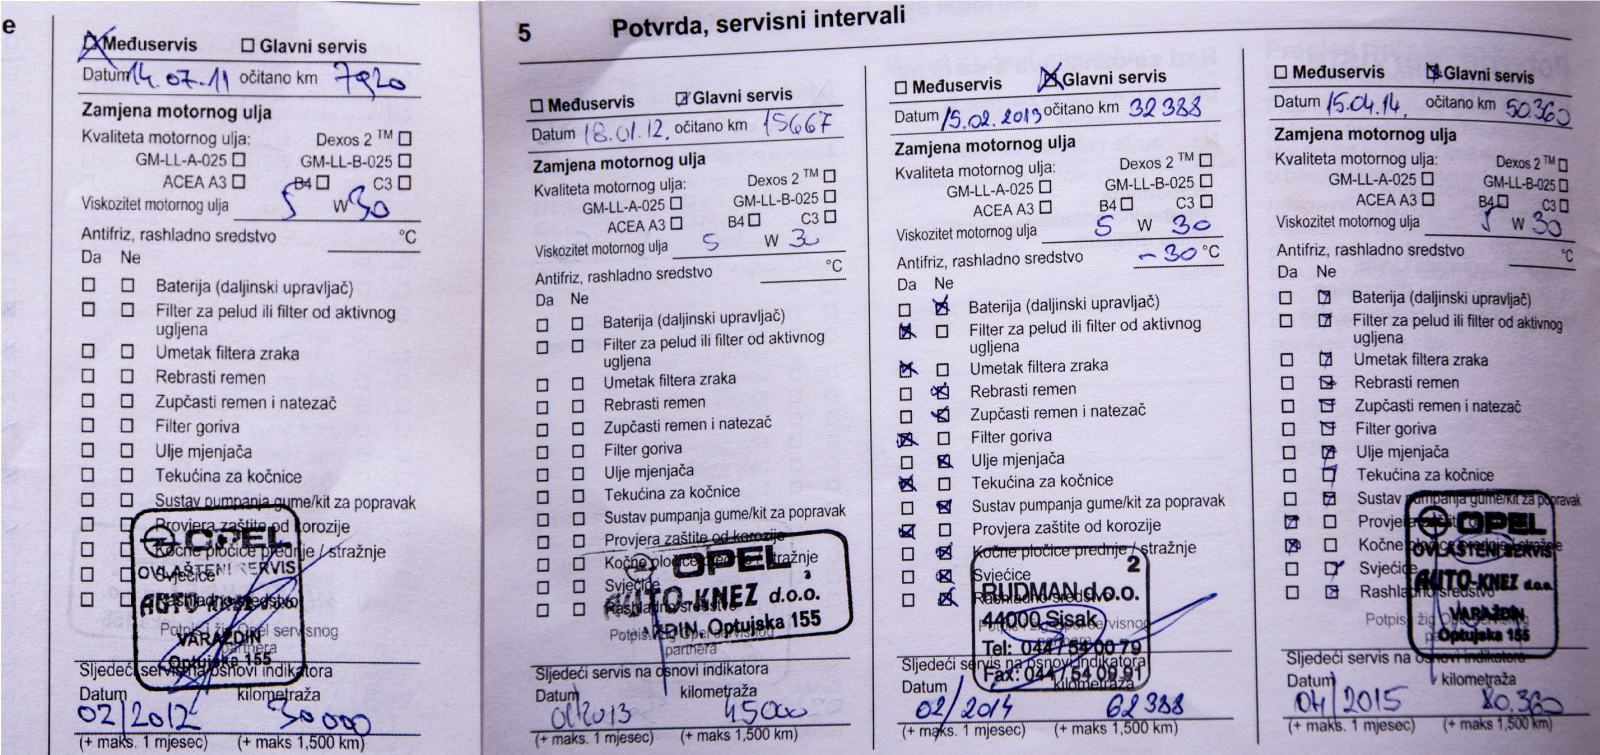 e
Međuservis Glavni servis
Datum 14.07.11 očitano km 7920
Zamjena motornog ulja
Kvaliteta motornog ulja: Dexos 2 TM
GM-LL-A-025 GM-LL-B-025
ACEA A3 B4 C3
Viskozitet motornog ulja 5 W 30
Antifriz, rashladno sredstvo °C
Da Ne
Baterija (daljinski upravljač)
Filter za pelud ili filter od aktivnog
ugljena
Umetak filtera zraka
Rebrasti remen
Zupčasti remen i natezač
Filter goriva
Ulje mjenjača
Tekućina za kočnice
Sustav pumpanja gume/kit za popravak
Provjera zaštite od korozije
Kočne pločice prednje / stražnje
Svjećice
Rashladno sredstvo
OPEL
OVLAŠTENI SERVIS
AUTO-KNEZ d.o.o.
VARAŽDIN
Optujska 155
Potpis i žig Opel servisnog
partnera
Sljedeći servis na osnovi indikatora
Datum kilometraža
02/2012 30000
(+ maks. 1 mjesec) (+ maks. 1,500 km)
5 Potvrda, servisni intervali
Međuservis Glavni servis
Datum 18.01.12. očitano km 15667
Zamjena motornog ulja
Kvaliteta motornog ulja: Dexos 2 TM
GM-LL-A-025 GM-LL-B-025
ACEA A3 B4 C3
Viskozitet motornog ulja 5 W 30
Antifriz, rashladno sredstvo °C
Da Ne
Baterija (daljinski upravljač)
Filter za pelud ili filter od aktivnog
ugljena
Umetak filtera zraka
Rebrasti remen
Zupčasti remen i natezač
Filter goriva
Ulje mjenjača
Tekućina za kočnice
Sustav pumpanja gume/kit za popravak
Provjera zaštite od korozije
Kočne pločice prednje / stražnje
Svjećice
Rashladno sredstvo
OPEL
AUTO-KNEZ d.o.o.
Optujska 155
Potpis i žig Opel servisnog
partnera
Sljedeći servis na osnovi indikatora
Datum kilometraža
01/2013 45000
(+ maks. 1 mjesec) (+ maks. 1,500 km)
Međuservis Glavni servis
Datum 15.02.2013 očitano km 32388
Zamjena motornog ulja
Kvaliteta motornog ulja: Dexos 2 TM
GM-LL-A-025 GM-LL-B-025
ACEA A3 B4 C3
Viskozitet motornog ulja 5 W 30
Antifriz, rashladno sredstvo -30 °C
Da Ne
Baterija (daljinski upravljač)
Filter za pelud ili filter od aktivnog
ugljena
Umetak filtera zraka
Rebrasti remen
Zupčasti remen i natezač
Filter goriva
Ulje mjenjača
Tekućina za kočnice
Sustav pumpanja gume/kit za popravak
Provjera zaštite od korozije
Kočne pločice prednje / stražnje
Svjećice
Rashladno sredstvo
2
RUDMAN d.o.o.
44000 Sisak
Tel: 044 / 54 00 79
Fax: 044 / 54 09 91
Potpis i žig Opel servisnog
partnera
Sljedeći servis na osnovi indikatora
Datum kilometraža
02/2014 62388
(+ maks. 1 mjesec) (+ maks. 1,500 km)
Međuservis Glavni servis
Datum 15.04.14. očitano km 50360
Zamjena motornog ulja
Kvaliteta motornog ulja: Dexos 2 TM
GM-LL-A-025 GM-LL-B-025
ACEA A3 B4 C3
Viskozitet motornog ulja 5 W 30
Antifriz, rashladno sredstvo °C
Da Ne
Baterija (daljinski upravljač)
Filter za pelud ili filter od aktivnog
ugljena
Umetak filtera zraka
Rebrasti remen
Zupčasti remen i natezač
Filter goriva
Ulje mjenjača
Tekućina za kočnice
Sustav pumpanja gume/kit za popravak
Provjera zaštite
Kočne pločice prednje / stražnje
Svjećice
Rashladno sredstvo
OPEL
OVLAŠTENI SERVIS
AUTO-KNEZ d.o.o.
VARAŽDIN
Optujska 155
Potpis i žig Opel servisnog
Sljedeći servis na osnovi indikatora
Datum kilometraža
04/2015 80.360
(+ maks. 1 mjesec) (+ maks. 1,500 km)